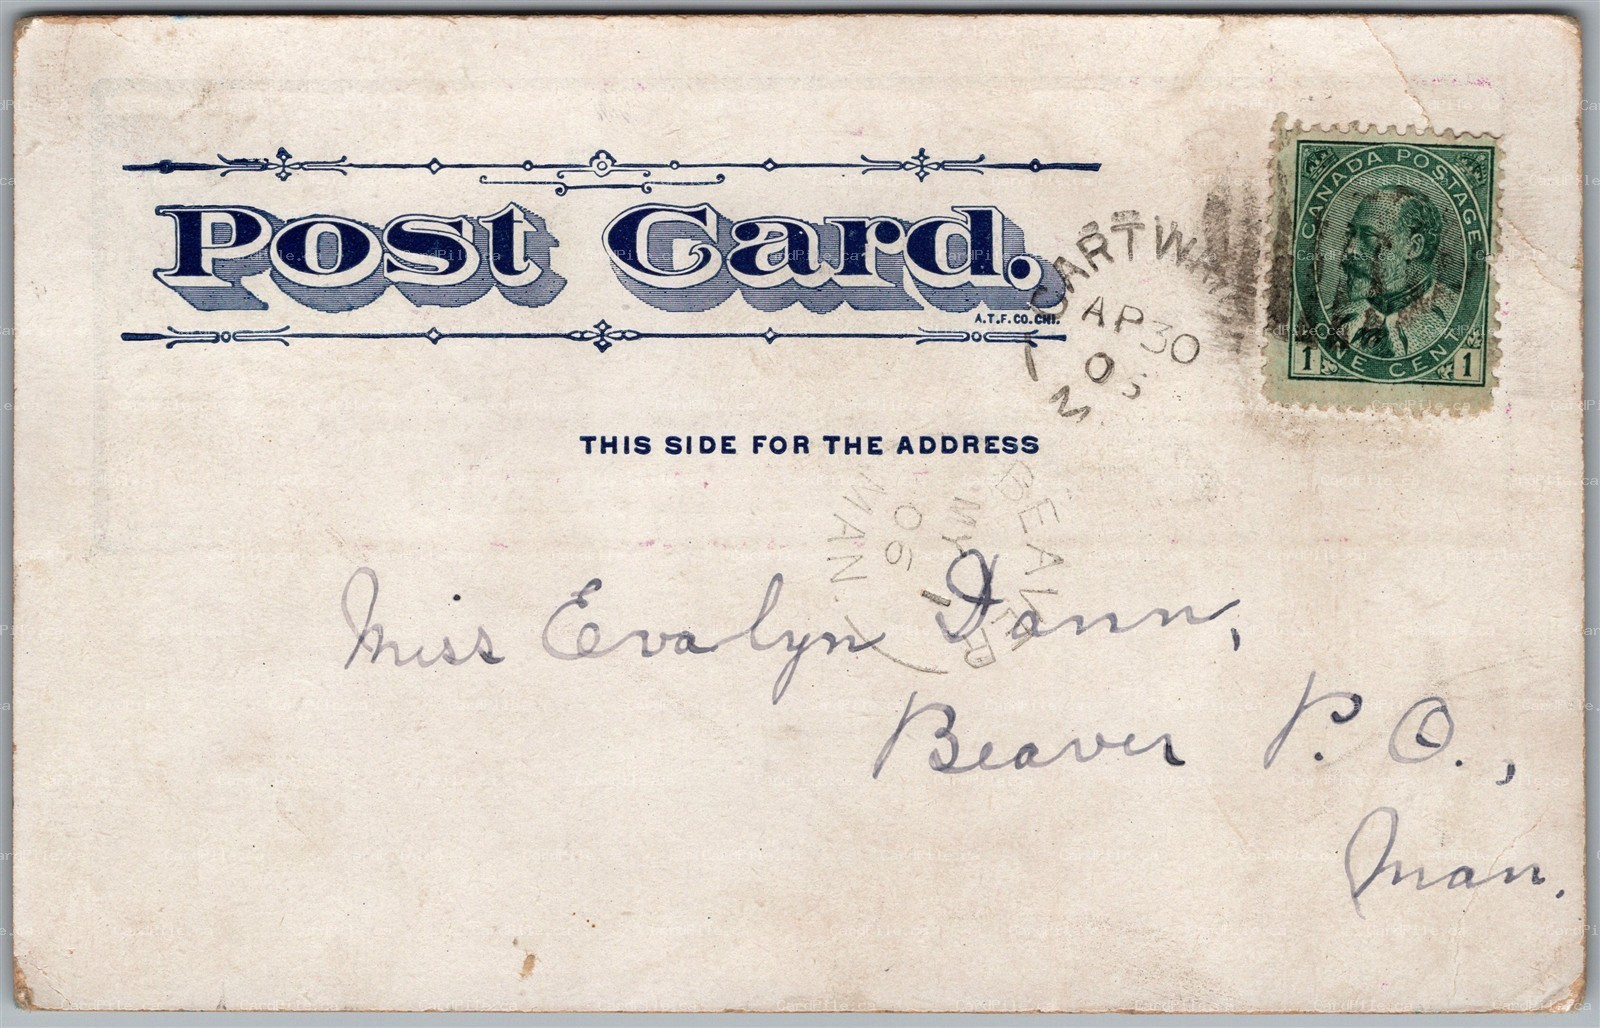 Post Card.
A.T.F.CO.CHI.
CANADA POSTAGE
1 ONE CENT 1
CARTWR
AP 30
06
M
THIS SIDE FOR THE ADDRESS
BEAVER
MY 1
06
MAN
Miss Evalyn Dann,
Beaver P. O.,
Man.
CardPile.ca